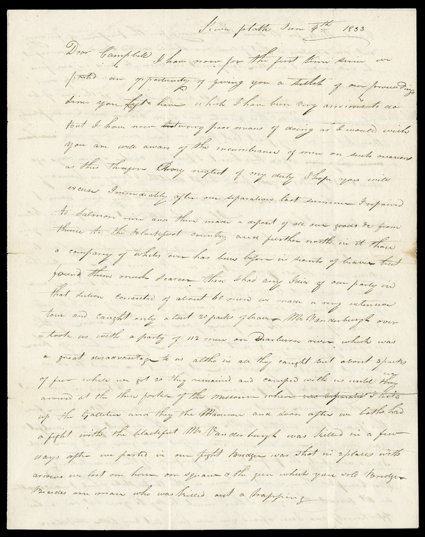 River platte June 4th 1833
Dear Campbell I have now for the first time since we
parted an opportunity of giving you a sketch of our proceedings
since you left here which I have been very anxious to do
But I have now but very poor means of doing as I would wish
you are well aware of the incumbrance of men on such occasions
as this therefore Any neglect of my duty I hope you will
excuse Immediately after our separation last summer I repaired
to Salmon river and there made a deposit of all our goods &c from
thence to the blackfoot country and further north in it than
a company of whites ever has been before in search of beaver but
found them much scarcer than I has any Idea of our party in
that section consisted of about 60 men we made a very extensive
tour and caught only about 20 packs of beaver Mr Vanderburgh over
took us with a party of 112 men on Dearborns river which was
a great disadvantage to us altho in all they caught but about 5 packs
of fur where we got 20 they remained and camped with us until they
arrived at the three forks of the Missouria where we separated I held
up the Gallatin and they the Madison and soon after we both had
a fight with the blackfeet Mr Vanderburgh was killed in a few
days after we parted in our fight Bridger was shot in 2 places with
arrows we lost one horse one squaw & the gun which you sold Bridger
Besides one man who was killed out a trapping